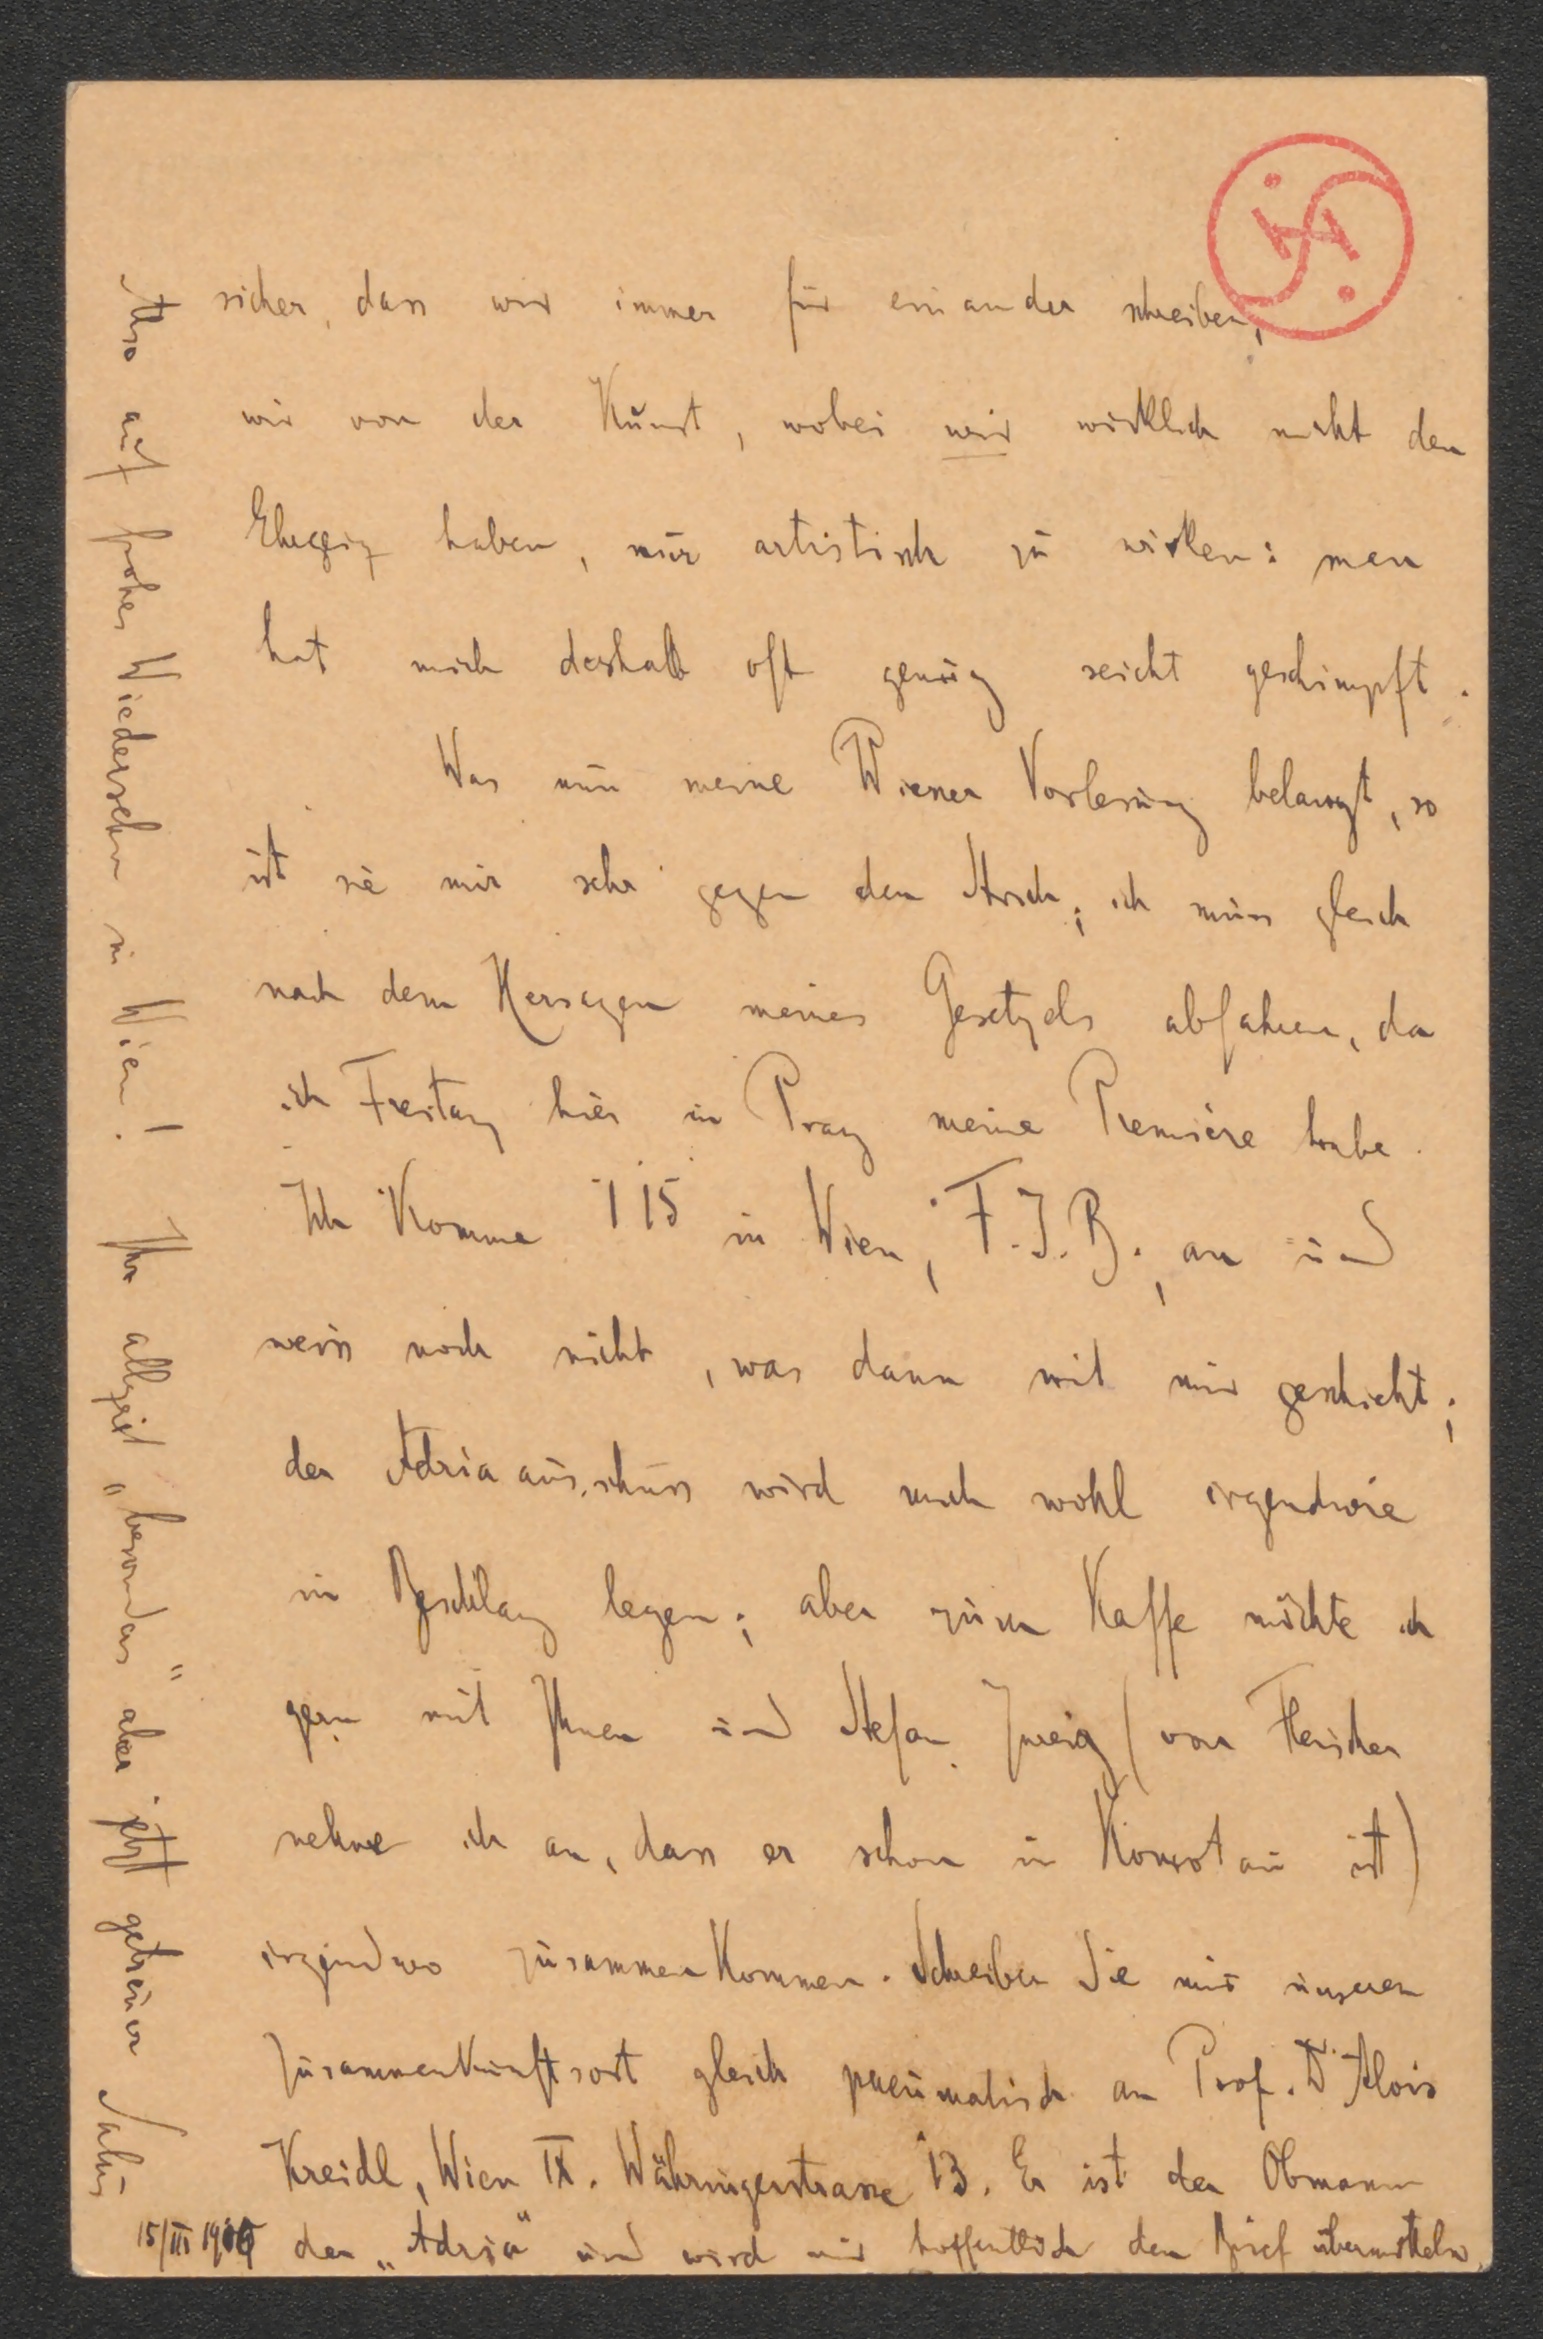 sicher, dass wir immer für einander schreiben,
wir von der Kunst, wobei wir wirklich nicht den
Ehrgeiz haben, nur artistisch zu wirken: man
hat mich deshalb oft genug seicht geschimpft.
Was nun meine Wiener Vorlesung belangt, so
ist sie mir sehr gegen den Arsch; ich muss gleich
nach dem Hersagen meines Gesetzels abfahren, da
ich Freitag hier in Prag meine Premiére habe.
Ich komme 1 15 in Wien, F.J.B., an und
weiss noch nicht, was dann mit mir geschieht;
der Adriaausschuss wird mich wohl irgendwie
in Beschlag legen; aber zum Kaffe möchte ich
gern mit Ihnen und Stefan Zweig (von Fleischer
nehme ich an, dass er schon in Komotau ist)
irgendwo zusammenkommen. Schreiben Sie mir unseren
Zusammenkunftsort gleich pneumatisch an Prof. Dr Alois
Kreidl, Wien IX. Währingerstrasse 13. Er ist der Obmann
der „Adria“ und wird mir hoffentlich den Brief übermitteln.
Also auf frohes Wiedersehn in Wien! Ihr allzeit „besonders“ aber jetzt getreuer Salus
15/III